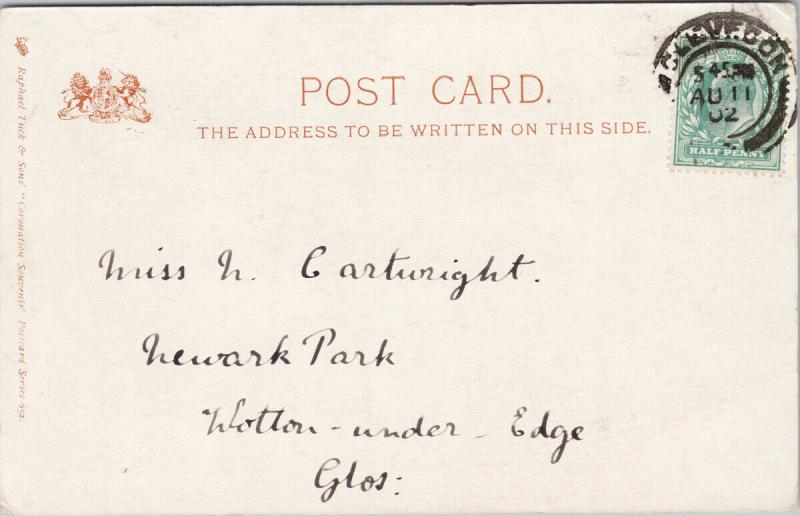 POST CARD.
THE ADDRESS TO BE WRITTEN ON THIS SIDE.
CLEVEDON
5 45PM
AU 11
02
HALF PENNY
Miss N. Cartwright.
Newark Park
Wotton-under-Edge
Glos:
Raphael Tuck & Sons' "Coronation Souvenir" Postcard Series 652.